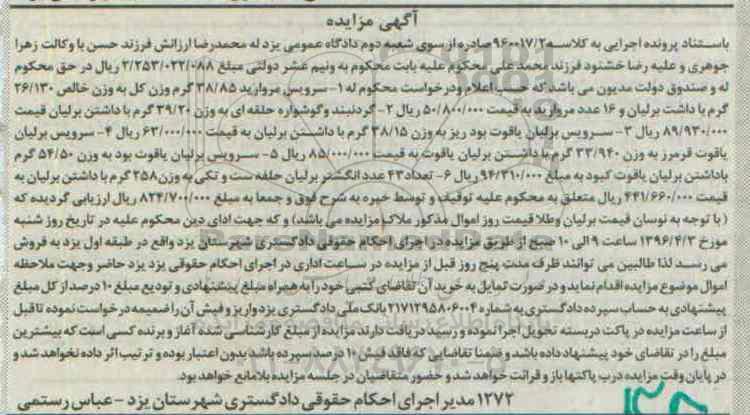 آگهی مزایده
باستناد پرونده اجرایی به کلاسه ۹۶۰۰۱۷/۲ صادره از سوی شعبه دوم دادگاه عمومی یزد له محمدرضا ارزانش فرزند حسن با وکالت زهرا
جوهری و علیه رضا خشنود فرزند محمد علی محکوم علیه بابت محکوم به ونیم عشر دولتی مبلغ ۲/۲۵۳/۰۲۲/۰۸۸ ریال در حق محکوم
له و صندوق دولت مدیون می باشد که حسب اعلام ودرخواست محکوم له ۱- سرویس مروارید ۳۸/۸۵ گرم وزن کل به وزن خالص ۲۶/۱۳۰
گرم با داشت برلیان و ۱۶ عدد مروارید به قیمت ۵۰/۸۰۰/۰۰۰ ریال ۲- گردنبند وگوشواره حلقه ای به وزن ۳۹/۲۰ گرم با داشتن برلیان قیمت
۸۹/۹۳۰/۰۰۰ ریال ۳- سرویس برلیان یاقوت بود ریز به وزن ۳۸/۱۵ گرم با داشتن برلیان به قیمت ۶۲/۰۰۰/۰۰۰ ریال ۴- سرویس برلیان
یاقوت قرمرز به وزن ۳۳/۹۴۰ گرم با داشتن برلیان یاقوت به قیمت ۸۵/۰۰۰/۰۰۰ ریال ۵- سرویس برلیان یاقوت بود به وزن ۵۴/۵۰ گرم
باداشتن برلیان یاقوت کبود به مبلغ ۹۴/۳۱۰/۰۰۰ ریال ۶- تعداد ۴۳ عدد انگشتر برلیان حلقه ست و تکی به وزن ۲۵۸ گرم با داشتن برلیان به
قیمت ۴۴۱/۶۶۰/۰۰۰ ریال متعلق به محکوم علیه توقیف و توسط خبره به شرح فوق و جمعا به مبلغ ۸۲۴/۷۰۰/۰۰۰ ریال ارزیابی گردیده که
( با توجه به نوسان قیمت برلیان وطلا قیمت روز اموال مذکور ملاک مزایده می باشد) و که جهت ادای دین محکوم علیه در تاریخ روز شنبه
مورخ ۱۳۹۶/۴/۳ ساعت ۹ الی ۱۰ صبح از طریق مزایده در اجرای احکام حقوقی دادگستری شهرستان یزد واقع در طبقه اول یزد به فروش
می رسد لذا طالبین می توانند ظرف مدت پنج روز قبل از مزایده در ساعت اداری در اجرای احکام حقوقی یزد یزد حاضر وجهت ملاحظه
اموال موضوع مزایده اقدام نماید و در صورت تمایل به خرید آن تقاضای کتبی خود را به همراه مبلغ پیشنهادی و تودیع مبلغ ۱۰ درصد از کل مبلغ
پیشنهادی به حساب سپرده دادگستری به شماره ۲۱۷۱۲۹۵۸۰۶۰۰۴ بانک ملی دادگستری یزد واریز و فیش آن را ضمیمه درخواست نموده تا قبل
از ساعت مزایده در پاکت دربسته تحویل اجرا نموده و رسید دریافت دارند مزایده از مبلغ کارشناسی شده آغاز و برنده کسی است که بیشترین
مبلغ را در تقاضای خود پیشنهاد داده باشد و ضمنا تقاضایی که فاقد فیش ۱۰ درصد سپرده باشد بدون اعتبار بوده و ترتیب اثر داده نخواهد شد و
در پایان وقت مزایده درب پاکتها باز و قرائت خواهد شد و حضور متقاضیان در جلسه مزایده بلامانع خواهد بود.
۱۲۷۲ مدیر اجرای احکام حقوقی دادگستری شهرستان یزد - عباس رستمی